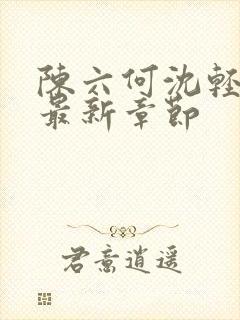 陳六何沈輕
最新章節
君意逍遥